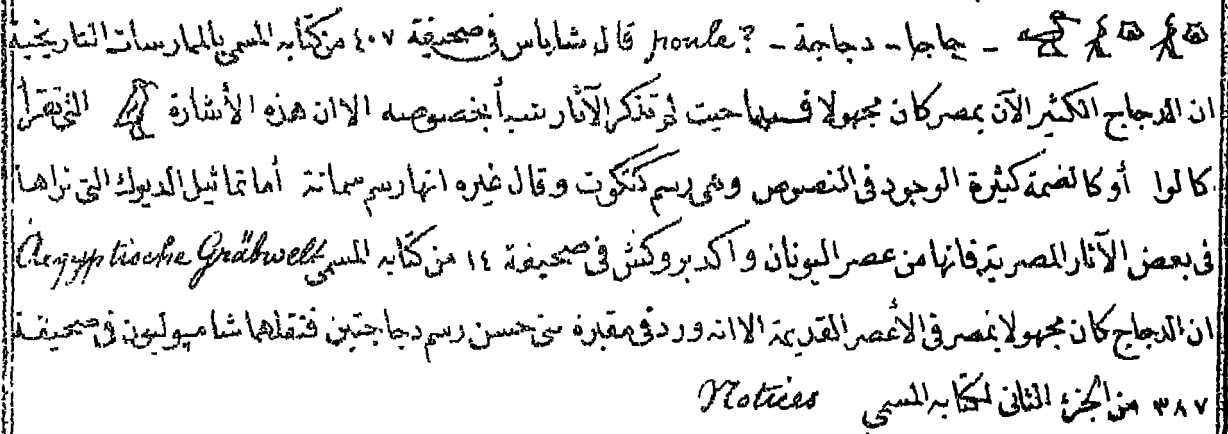 - جاجا - دجاجة - ? poule قال شاباس في صحيفة ٤٠٧ من كتابه المسمي بالممارسات التاريخية
ان الدجاج الكثير الآن بمصر كان مجهولا فيها حيث لم تذكر الآثار شيأ بخصوصه الا ان هذه الأشارة التي تقرأ
كالوا أو كالضمة كثيرة الوجود في النصوص وهي رسم كتكوت وقال غيره انها رسم سمانة أما تماثيل الديوك التي نراها
في بعض الآثار المصرية فانها من عصر اليونان وأكد بروكش في صحيفة ١٤ من كتابه المسمي Aegyptische Gräbwelt
ان الدجاج كان مجهولا بمصر في الأعصر القديمة الا انه ورد في مقبرة بني حسن رسم دجاجتين فنقلهما شامبوليون في صحيفة
٣٨٧ من الجزء الثاني لكتابه المسمي Notices